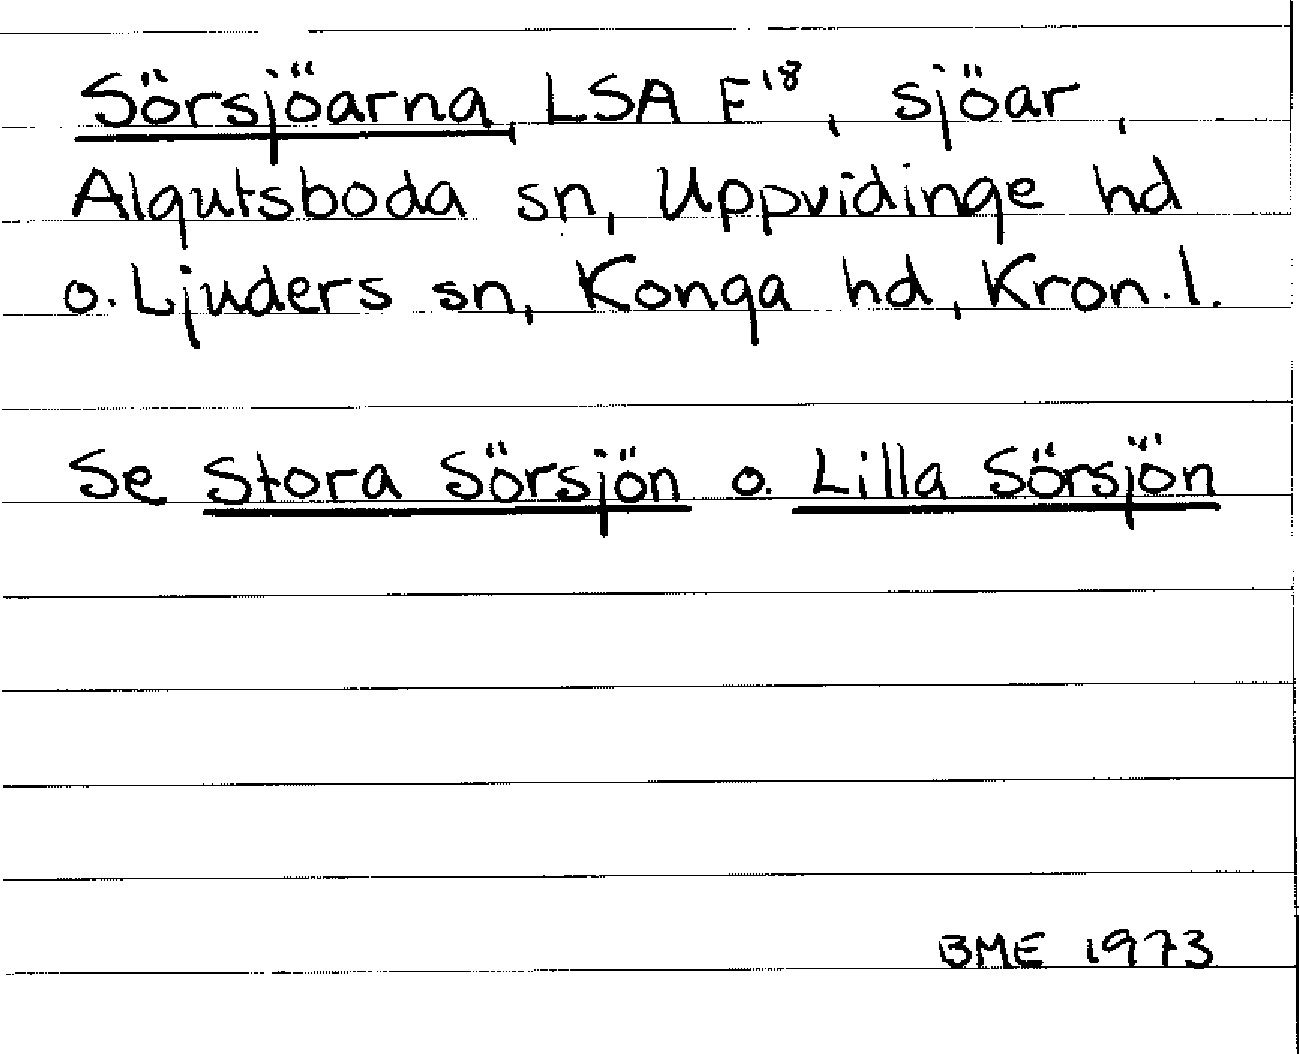 Sörsjöarna, LSA E¹⁸, sjöar,
Algutsboda sn, Uppvidinge hd
o. Ljuders sn, Konga hd, Kron. l.
Se Stora Sörsjön o. Lilla Sörsjön
BME 1973